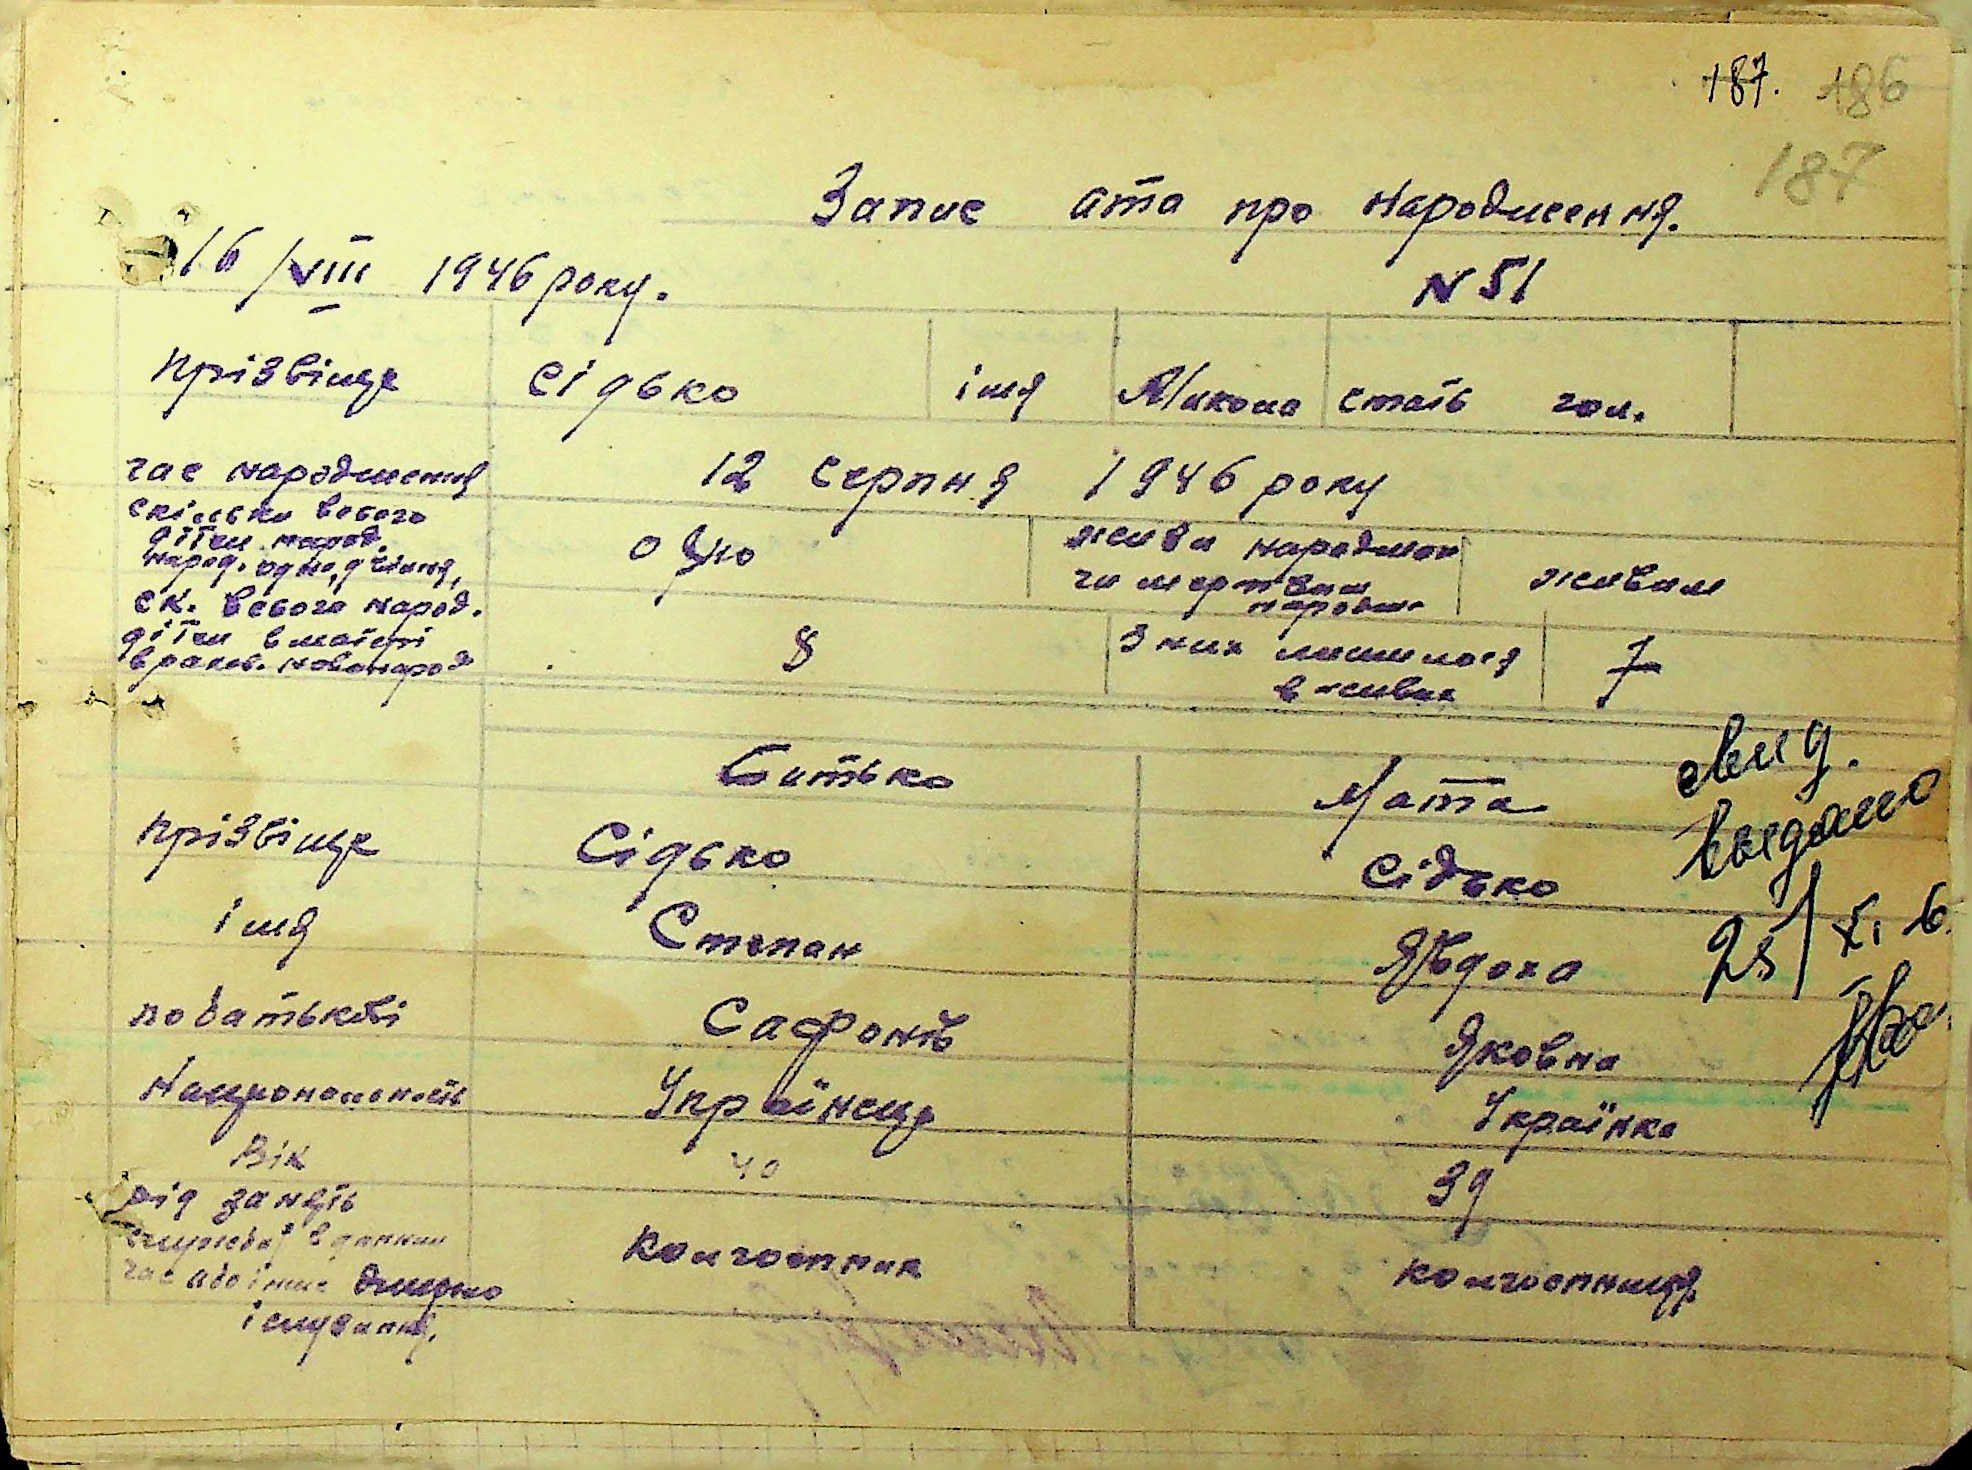 187. 186
187
Запис ата про народження.
16/VIII 1946 року.
N 51
прізвіще Сідько імя Микола стать чол.
час народження 12 серпня 1946 року
скілько всього
дітей народ.
народ. одно, двійня, одно живим народжен чи мертвим народж. живим
ск. всього народ.
дітей в матері
врахов. новонарод 8 з них лишилося в живих 7
Батько Мати
прізвіще Сідько Сідько
імя Степан Явдоха
по батькові Сафонів Яковна
Национольность Українець Українка
Вік 40 39
рід занять
службы в данний
час або інше джерело колгоспник колгоспниця
існування.
свид.
выдано
25/XI 6.